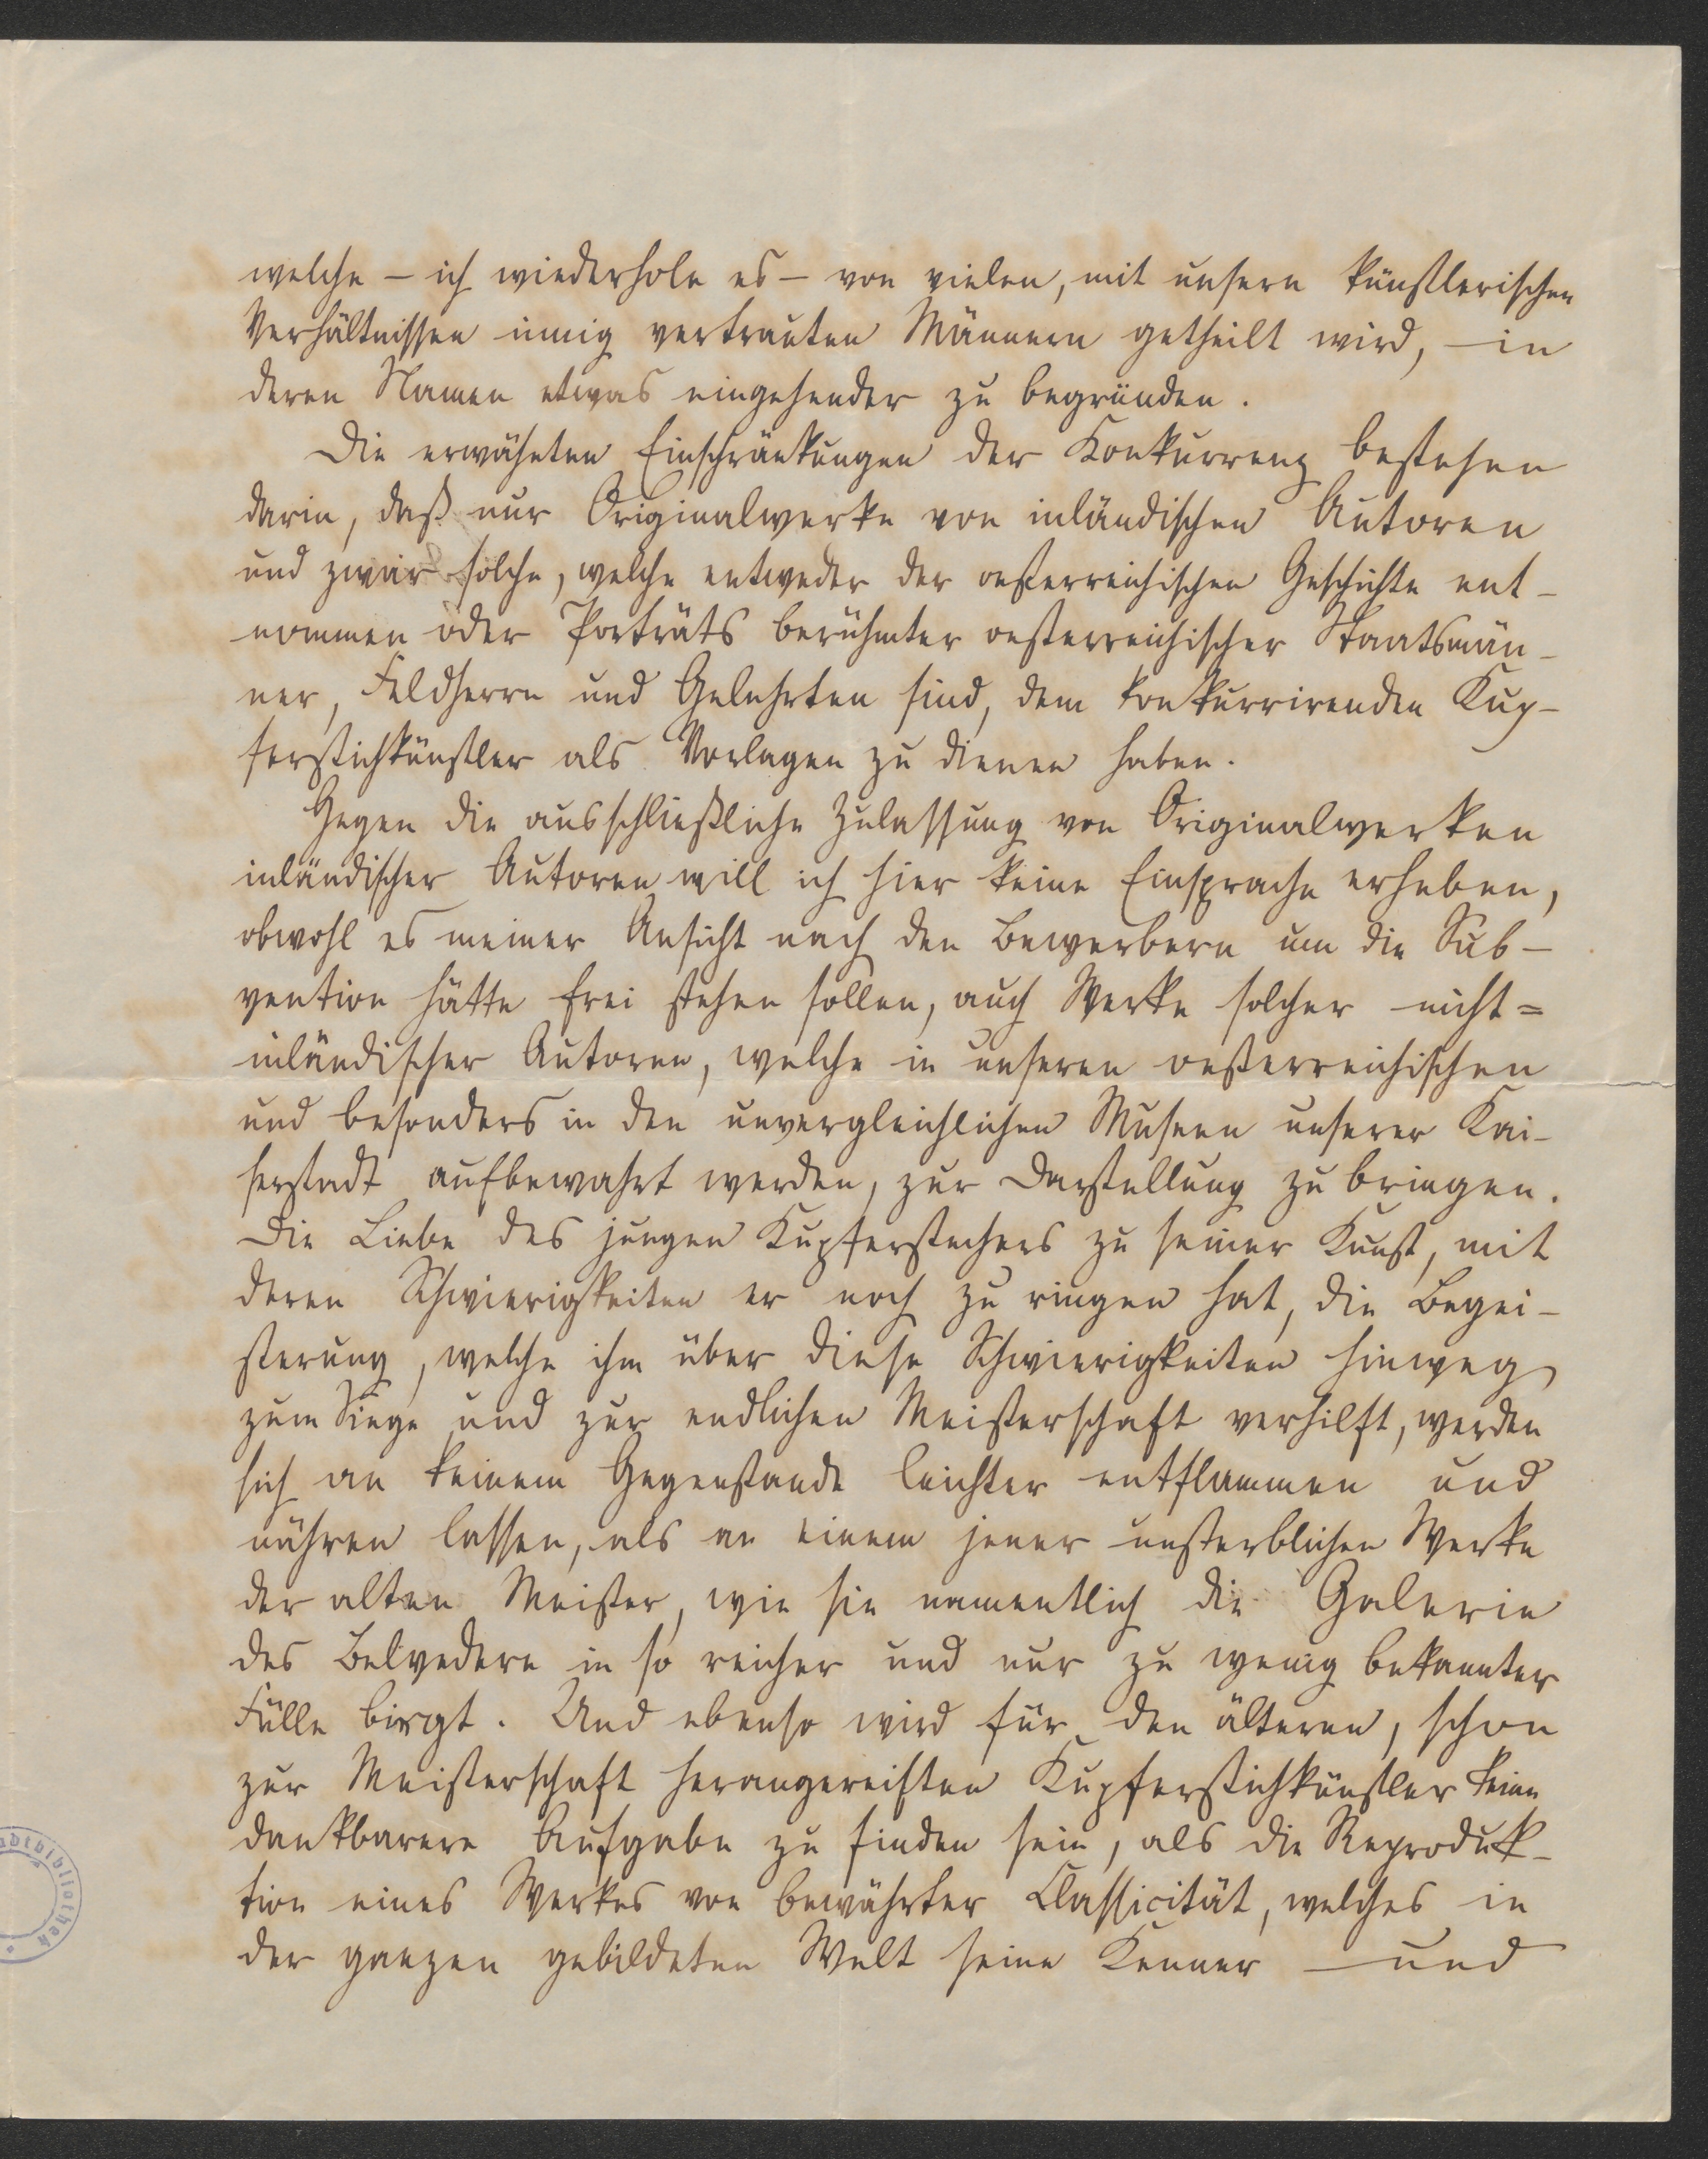 welche – ich wiederhole es – von vielen, mit unsern künstlerischen
Verhältnissen innig vertrauten Männern getheilt wird, – in
deren Namen etwas eingehender zu begründen.
Die erwähnten Einschränkungen der Konkurrenz bestehen
darin, daß nur Originalwerke von inländischen Autoren
und zwar solche, welche entweder der oesterreichischen Geschichte ent-
nommen oder Porträts berühmter oesterreichischer Staatsmän-
ner, Feldherrn und Gelehrten sind, dem konkurrirenden Kup-
ferstichkünstler als Vorlagen zu dienen haben.
Gegen die ausschließliche Zulassung von Originalwerken
inländischer Autoren will ich hier keine Einsprache erheben,
obwohl es meiner Ansicht nach den Bewerbern um die Sub-
vention hätte frei stehen sollen, auch Werke solcher nicht=
inländischer Autoren, welche in unseren oesterreichischen
und besonders in den unvergleichlichen Museen unserer Kai-
serstadt aufbewahrt werden, zur Darstellung zu bringen.
Die Liebe des jungen Kupferstechers zu seiner Kunst, mit
deren Schwierigkeiten er noch zu ringen hat, die Begei-
sterung, welche ihm über diese Schwierigkeiten hinweg
zum Siege und zur endlichen Meisterschaft verhilft, werden
sich an keinem Gegenstande leichter entflammen und
nähren lassen, als an einem jener unsterblichen Werke
der alten Meister, wie sie namentlich die Galerie
des Belvedere in so reicher und nur zu wenig bekannter
Fülle birgt. Und ebenso wird für den älteren, schon
zur Meisterschaft herangereiften Kupferstichkünstler keine
dankbarere Aufgabe zu finden sein, als die Reproduk-
tion eines Werkes von bewährter Classicität, welches in
der ganzen gebildeten Welt seine Kenner – und
adtbibliothek